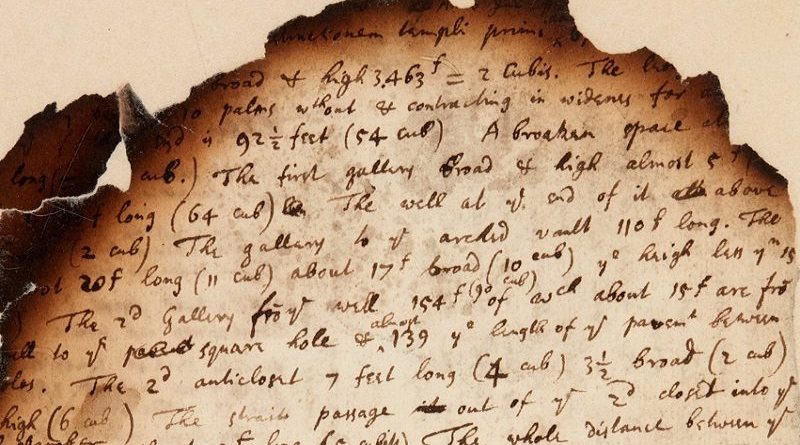 templi primi
broad & high 3.463f = 2 Cubits. The
10 palms wthout & contracting in widenes for
is 92½ feet (54 cub) A broaken space at
long cub.) The first gallery broad & high almost 5
long (64 cub) The well at ye end of it above
(2 cub) The gallery to ye arched vault 110f long. The
20f long (11 cub) about 17f broad (10 cub) ye heigh less yn 15
The 2d Gallery frō ye well 154f (90 cub) of wch about 15f are frō
to ye square hole & almost 139 ye length of ye pavemt between
The 2d anticloset 7 feet long (4 cub) 3½ broad (2 cub)
high (6 cub) The strait passage out of ye 2d closet into ye
long The whole distance between ye